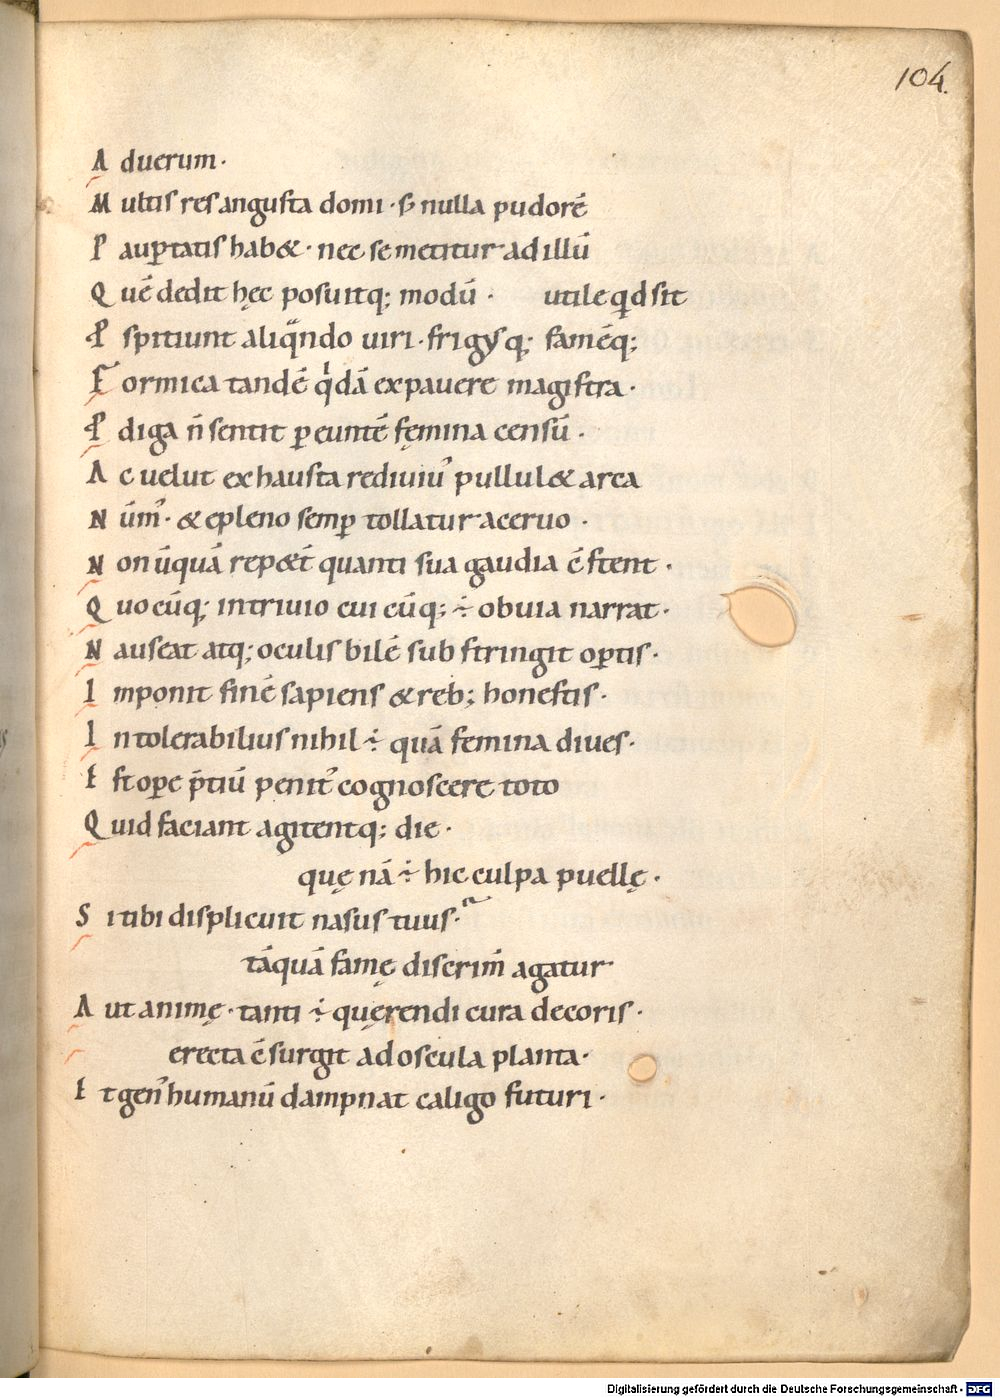 104.
A duerum·
M ultis res angusta domi · s̄ nulla pudorē
P aup̄tatis hab& · nec se metitur ad illū
Q uē dedit hęc posuitq; modū · utile qd sit
P spitiunt aliqᵃndo uiri · frigꝰ q; famēq;
F ormica tandē qⁱdā expauere magistra ·
P diga n̄ sentit ꝑeuntē fęmina censū ·
A c uelut exhausta rediuiuꝰ pullul& arca
N ūmꝰ · & epleno semꝑ tollatur aceruo ·
N on ūquā rep&t̄ quanti sua gaudia c̄stent ·
Q uocūq; intriuio cui cūq; ÷ obuia narrat ·
N auseat atq; oculis bilē substringit oꝑtis ·
I mponit finē sapiens & reb; honestis ·
I ntolerabilius nihil ÷ quā femina diues ·
E st oꝑe p̄tiū penitꝰ cognoscere toto
Q uid faciant agitentq; die ·
quę nā ÷ hic culpa puellę ·
S i tibi displicuit nasus tuus ·
tāquā famę discrim̄ agatur
A ut animę · tanti ÷ quęrendi cura decoris ·
erecta c̄surgit ad oscula planta ·
E t genꝰ humanū dampnat caligo futuri ·
Digitalisierung gefördert durch die Deutsche Forschungsgemeinschaft - DFG